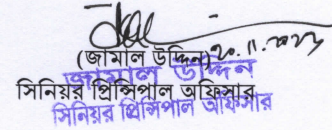 (জামাল উদ্দিন)
জামাল উদ্দিন
সিনিয়র প্রিন্সিপাল অফিসার
সিনিয়র প্রিন্সিপাল অফিসার